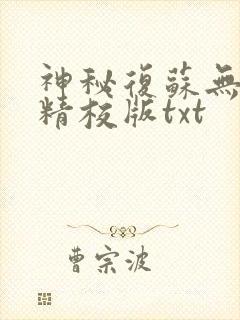 神秘復蘇無
精校版txt
曹宗波